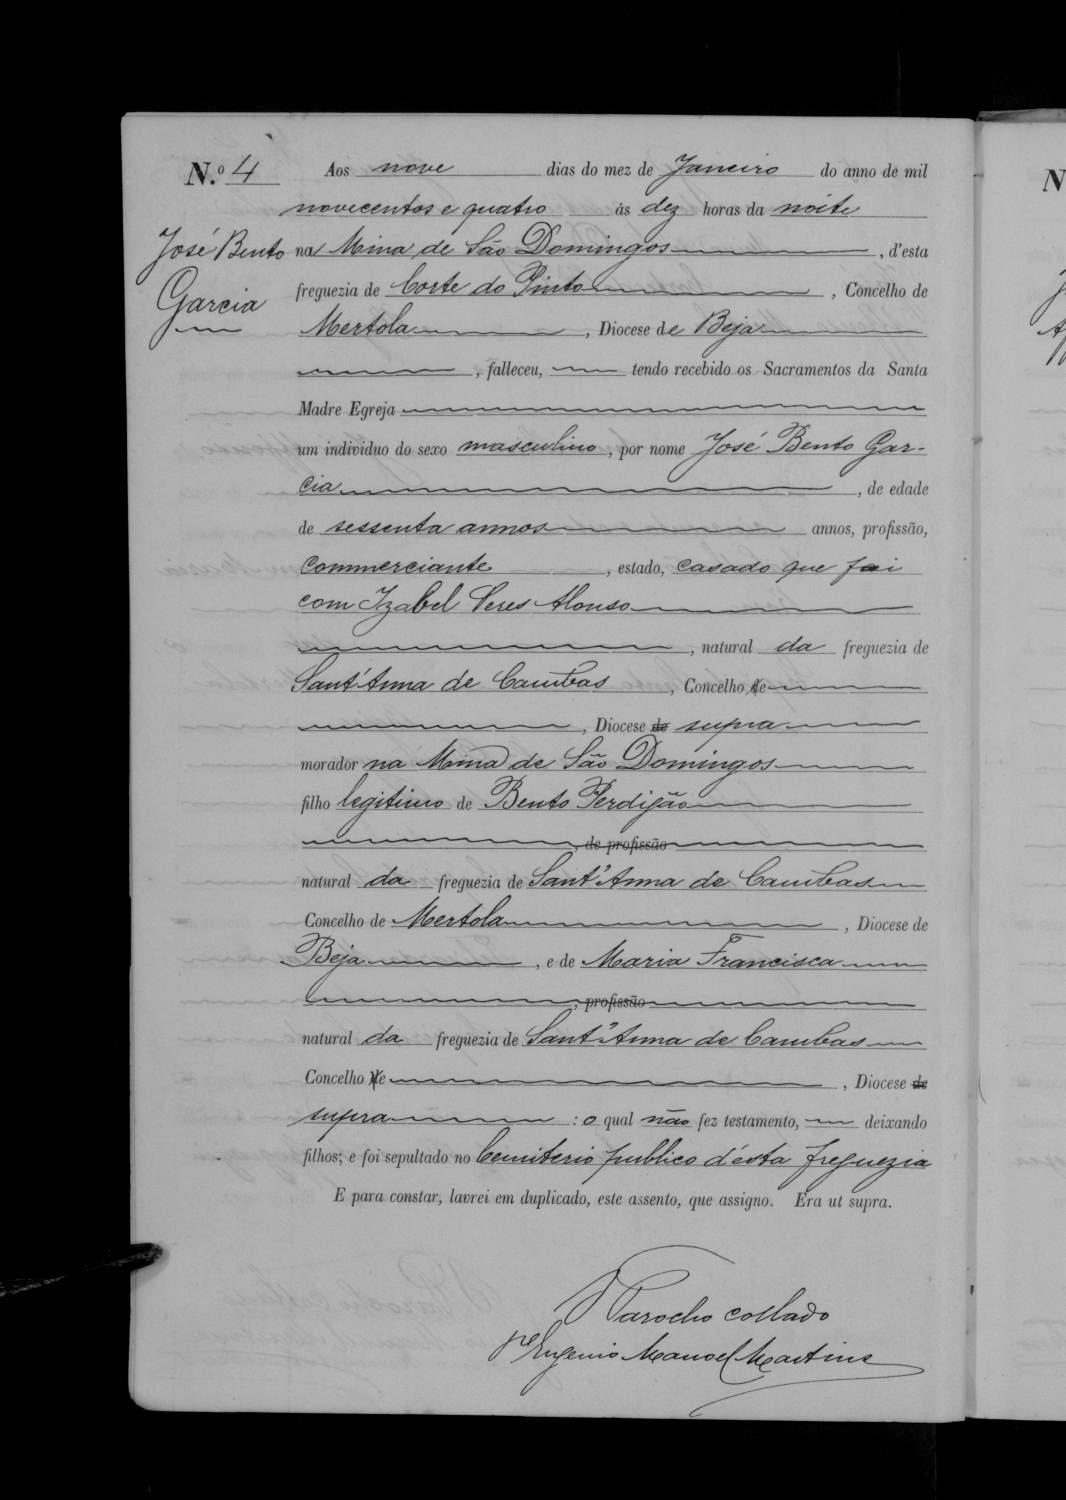 N.º 4
Aos nove dias do mez de Janeiro do anno de mil
novecentos e quatro ás dez horas da noite
José Bento
Garcia
na Mina de São Domingos, d'esta
freguezia de Corte do Pinto, Concelho de
Mertola, Diocese de Beja
, falleceu, tendo recebido os Sacramentos da Santa
Madre Egreja
um individuo do sexo masculino, por nome José Bento Gar-
cia, de edade
de sessenta annos annos, profissão,
commerciante, estado, casado que foi
com Izabel Peres Alonso
, natural da freguezia de
Sant'Anna de Cambas, Concelho de
, Diocese de supra
morador na Mina de São Domingos
filho legitimo de Bento Perdigão
, de profissão
natural da freguezia de Sant'Anna de Cambas
Concelho de Mertola, Diocese de
Beja, e de Maria Francisca
, profissão
natural da freguezia de Sant'Anna de Cambas
Concelho de , Diocese de
supra : o qual não fez testamento, deixando
filhos; e foi sepultado no Cemiterio publico d'esta freguezia
E para constar, lavrei em duplicado, este assento, que assigno. Era ut supra.
O Parocho collado
Pe Eugenio Manoel Martins
N